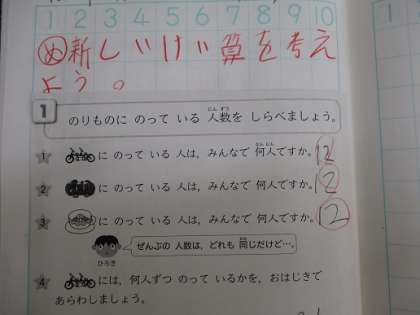 1 2 3 4 5 6 7 8 9 10 1
め 新しいけい算を考え
よう。
1 のりものに のって いる 人数を しらべましょう。
1 に のって いる 人は、みんなで 何人ですか。 12
2 に のって いる 人は、みんなで 何人ですか。 12
3 に のって いる 人は、みんなで 何人ですか。 12
ぜんぶの 人数は、どれも 同じだけど…。
ひろき
4 には、何人ずつ のって いるかを、おはじきで
あらわしましょう。